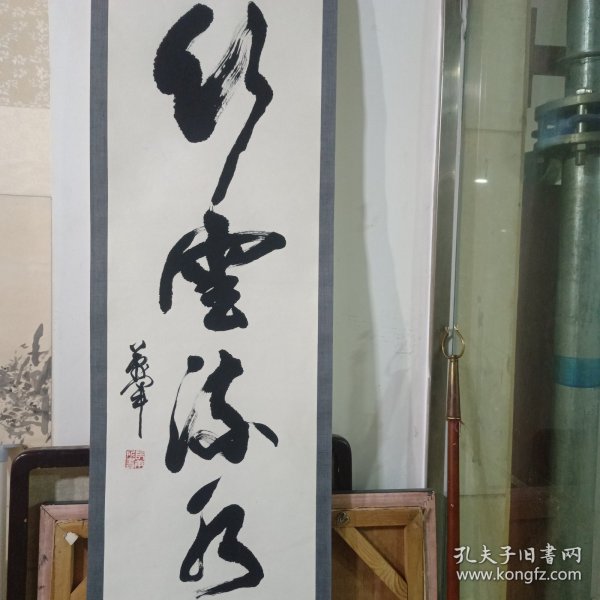 行雲流水
孔夫子旧書网
www.kongfz.com